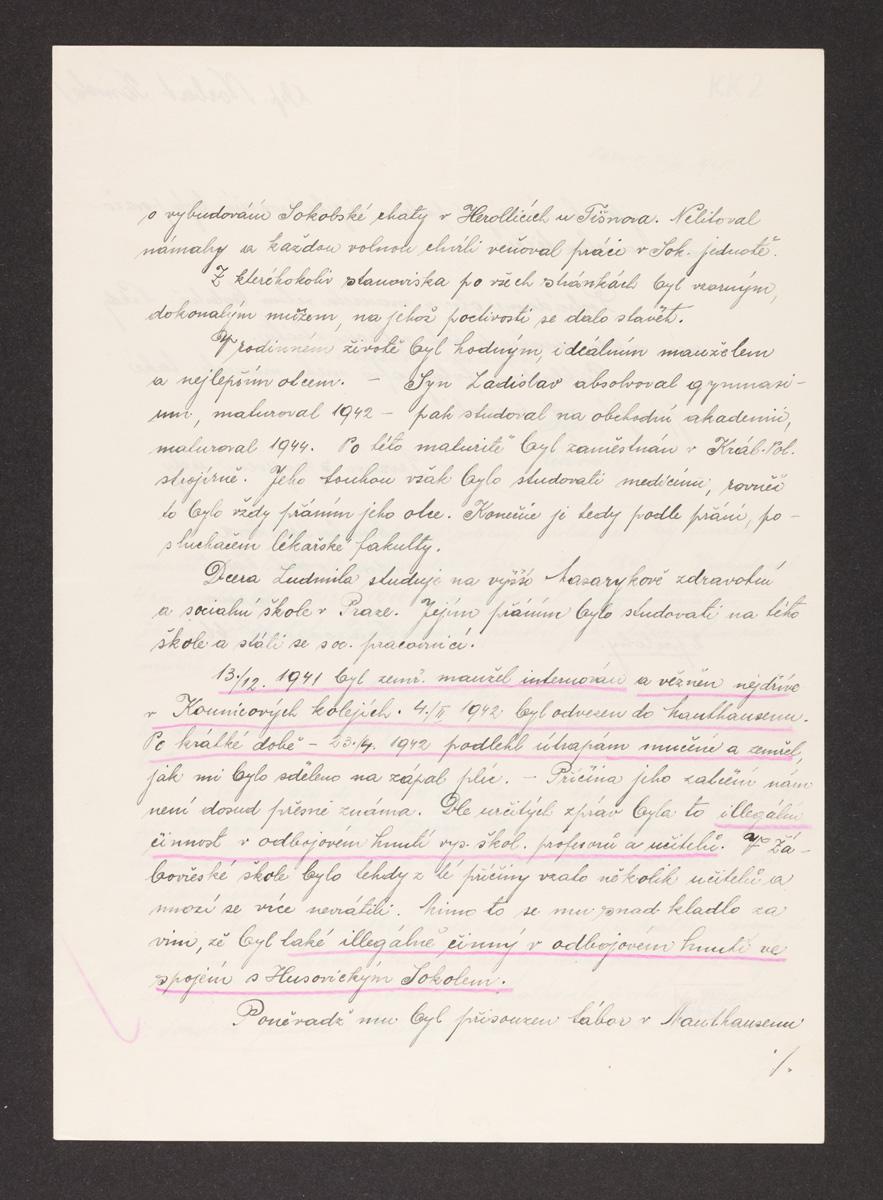 o vybudování Sokolské chaty v Herolticích u Tišnova. Nelitoval
námahy a každou volnou chvíli věnoval práci v Sok. jednotě.
Z kteréhokoliv stanoviska po všech stránkách byl vzorným,
dokonalým mužem, na jehož poctivosti se dalo stavět.
V rodinném životě byl hodným, ideálním manželem
a nejlepším otcem. – Syn Ladislav absolvoval gymnasi-
um, maturoval 1942 – pak studoval na obchodní akademii,
maturoval 1944. Po této maturitě byl zaměstnán v Král. Pol.
strojírně. Jeho touhou však bylo studovati medicinu, rovněž
to bylo vždy přáním jeho otce. Konečně je tedy podle přání, po-
sluchačem lékařské fakulty.
Dcera Ludmila studuje na vyšší Masarykově zdravotní
a sociální škole v Praze. Jejím přáním bylo studovati na této
škole a státi se soc. pracovnicí.
13./12. 1941 byl zemř. manžel internován a vězněn nejdříve
v Kounicových kolejích. 4./II 1942 byl odvezen do Mauthausenu.
Po krátké době – 23./4. 1942 podlehl útrapám mučení a zemřel,
jak mi bylo sděleno na zápal plic. – Příčina jeho zatčení nám
není dosud přesně známa. Dle určitých zpráv byla to illegální
činnost v odbojovém hnutí vys. škol. profesorů a učitelů. Ve Ža-
bovřeské škole bylo tehdy z té příčiny vzato několik učitelů a
mnozí se více nevrátili. Mimo to se mu snad kladlo za
vinu, že byl také illegálně činný v odbojovém hnutí ve
spojení s Husovickým Sokolem.
Poněvadž mu byl přisouzen tábor v Mauthausenu
./.